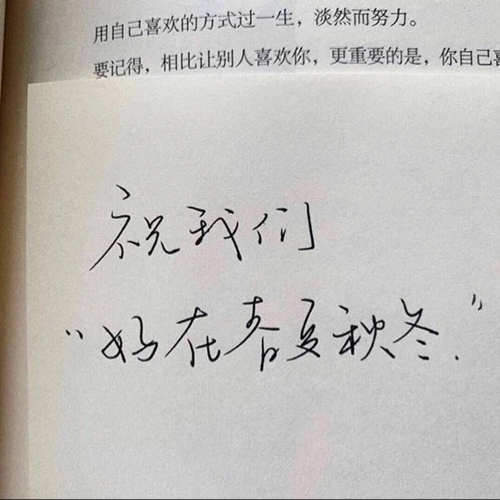 用自己喜欢的方式过一生，淡然而努力。
要记得，相比让别人喜欢你，更重要的是，你自己喜
祝我们
“好在春夏秋冬.”